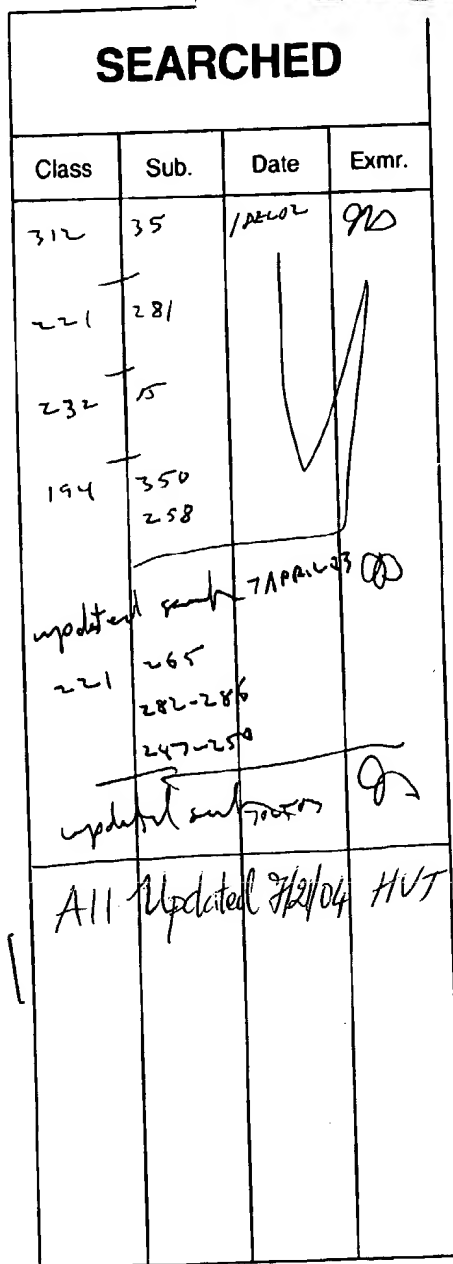 SEARCHED
Class Sub. Date Exmr.
312 35 1DEC02
221 281
232 15
194 350
258
updated search 7APRIL03
221 265
282-286
247-250
updated
All Updated 7/21/04 HVT